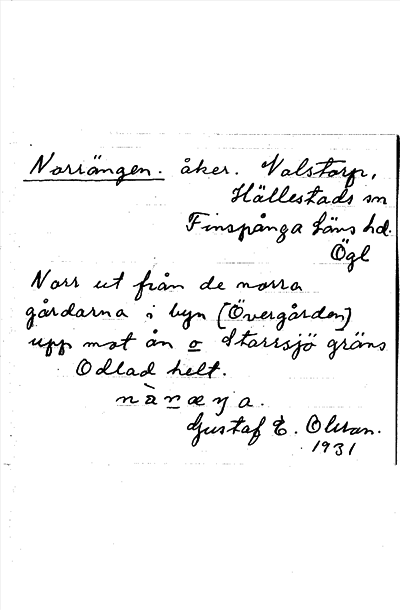 Norrängen. åker. Valstorp,
Hällestads sn
Finspånga läns hd.
Ögl
Norr ut från de norra
gårdarna i byn (Övergården)
upp mot ån o Storrsjö gräns
Odlad helt.
Gustaf E. Olsson.
1931